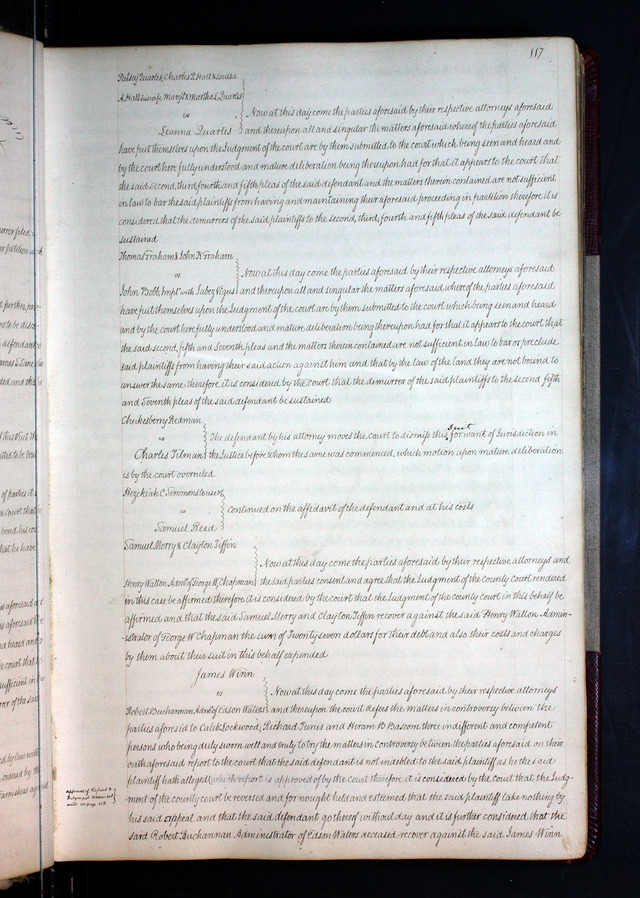 117
Patsey Quarles, Charles R. Hall & Louisa
A. Hall his wife, Mary & Martha E Quarles
vs
Now at this day come the parties aforesaid by their respective attorneys aforesaid
Leanna Quarles and thereupon all and singular the matters aforesaid whereof the parties aforesaid
have put themselves upon the Judgment of the court are by them submitted to the court which being seen and heard and
by the court here fully understood and mature deliberation being thereupon had for that it appears to the court that
the said second, third, fourth and fifth pleas of the said defendant and the matters therein contained are not sufficient
in law to bar the said plaintiffs from having and maintaining their aforesaid proceeding in partition therefore it is
considered that the demurrers of the said plaintiffs to the second, third, fourth and fifth pleas of the said defendant be
sustained
Thomas Graham & John K Graham
vs
Now at this day come the parties aforesaid by their respective attorneys aforesaid
John Bobb, Impl'd with Jabez Vigus and thereupon all and singular the matters aforesaid where of the parties aforesaid
have put themselves upon the Judgment of the court are by them submitted to the court which being seen and heard
and by the court here fully understood and mature deliberation being thereupon had for that it appears to the court that
the said second, fifth and Seventh pleas and the matters therein contained are not sufficient in law to bar or preclude
said plaintiffs from having their said action against him and that by the law of the land they are not bound to
answer the same therefore it is considered by the court that the demurrer of the said plaintiffs to the second fifth
and Seventh pleas of the said defendant be sustained
Chukesberry Redman
vs
The defendant by his attorney moves the court to dismiss this suit for want of Jurisdiction in
Charles Tilman the Justice before whom the same was commenced, which motion upon mature deliberation
is by the court overruled
Hezekiah C. Simmons to use
vs
Continued on the affidavit of the defendant and at his costs
Samuel Reed
Samuel Merry & Clayton Tiffin
Now at this day come the parties aforesaid by their respective attorneys and
Henry Walton Adm'r of George W. Chapman the said parties consent and agree that the Judgment of the county court rendered
in this case be affirmed therefore it is considered by the court that the Judgment of the county court in this behalf be
affirmed and that the said Samuel Merry and Clayton Tiffin recover against the said Henry Walton Admin-
istrator of George W Chapman the sum of Twenty seven dollars for their debt and also their costs and charges
by them about their suit in this behalf expended
James Winn
vs
Now at this day come the parties aforesaid by their respective attorneys
Robert Buchannan Adm'r of Edson Waters and thereupon the court refers the matters in controversy between the
parties aforesaid to Caleb Lockwood, Richard Tunis and Hiram B Bascom three indifferent and competent
persons who being duly sworn well and truly to try the matters in controversy between the parties aforesaid on their
oath aforesaid report to the court that the said defendant is not indebted to the said plaintiff as he the said
plaintiff hath alleged, which report is approved of by the court therefore it is considered by the court that the Judg-
ment of the county court be reversed and for nought held and esteemed that the said plaintiff take nothing by
his said appeal and that the said defendant go thereof without day and it is further considered that the
said Robert Buchannan Administrator of Edson Waters deceased recover against the said James Winn